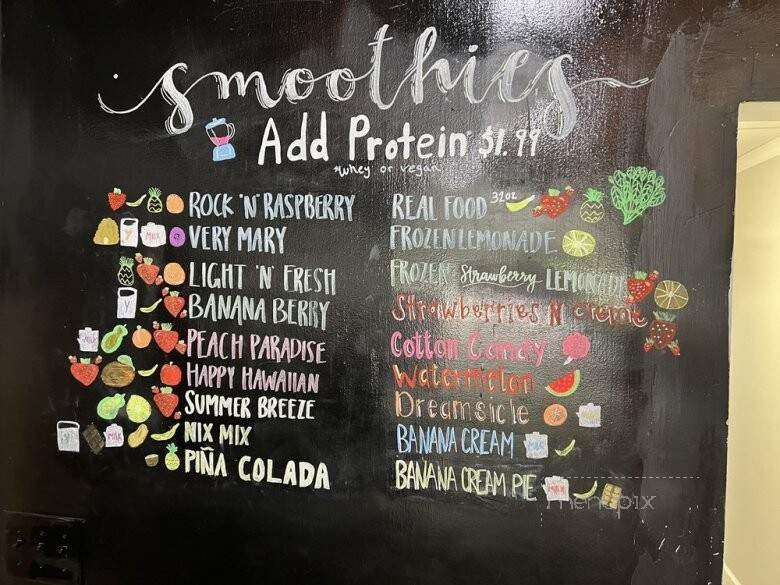 smoothies
Add Protein $1.99
*whey or vegan
ROCK 'N' RASPBERRY
VERY MARY
LIGHT 'N' FRESH
BANANA BERRY
PEACH PARADISE
HAPPY HAWAIIAN
SUMMER BREEZE
NIX MIX
PIÑA COLADA
REAL FOOD 32oz
FROZEN LEMONADE
FROZEN Strawberry LEMONADE
Strawberries N Creme
Cotton Candy
Watermelon
Dreamsicle
BANANA CREAM
BANANA CREAM PIE
menupix